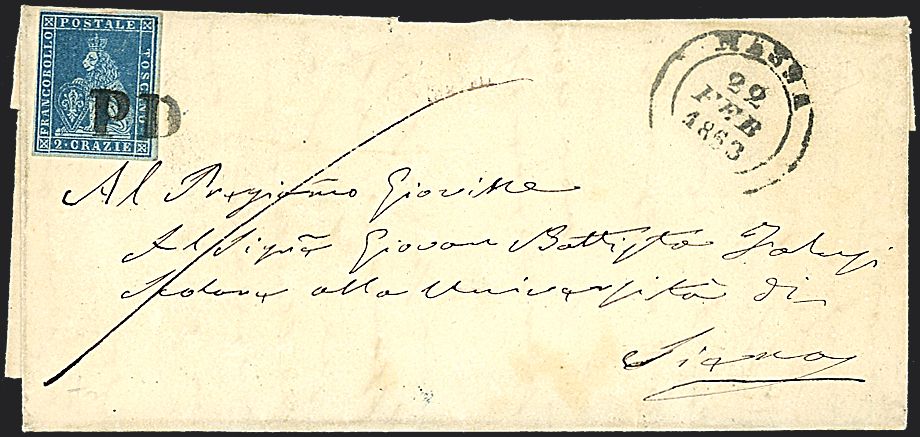 FRANCOBOLLO
POSTALE
TOSCANO
2·CRAZIE
PD
MASSA
22
FEB
1853
Al Pregiãmo Giovine
Al Signã Giovan Battista
alla Università di
Siena